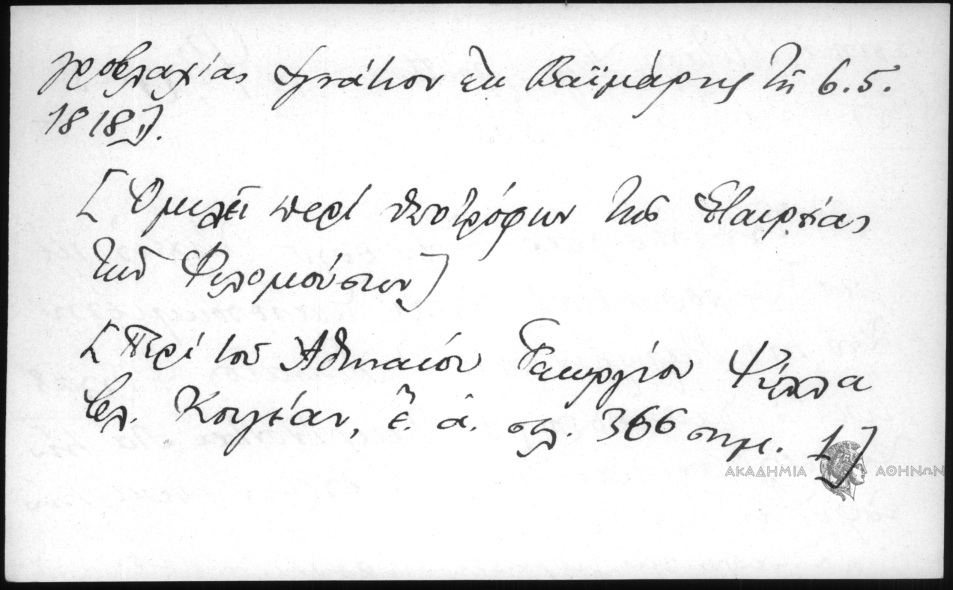 γροβλαχίας Ἰγνάτιον ἐκ Βαϊμάρης τῇ 6.5.
1818].
[Ὁμιλεῖ περὶ ὑποτρόφων τῆς Ἑταιρείας
τῶν Φιλομούσων]
[Περὶ τοῦ Ἀθηναίου Γεωργίου Ψύλλα
βλ. Κουγέαν, ἔ. ἀ. σελ. 366 σημ. 1]
ΑΚΑΔΗΜΙΑ ΑΘΗΝΩΝ